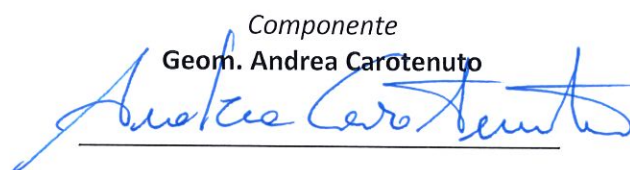 Componente
Geom. Andrea Carotenuto
Andrea Carotenuto